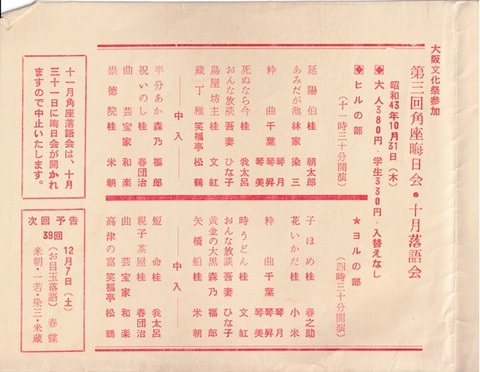 大阪文化祭参加
第三回角座晦日会・十月落語会
昭和43年10月31日（木）
◆大人380円・学生330円・入替えなし
◆ヒルの部（十一時三十分開演）
延陽伯 桂 朝太郎
あみだが池 林家 染三
粋曲 千葉 琴月 琴昇 琴美
死ぬなら今 桂 我太呂
おんな放談 吾妻 ひな子
鳥屋坊主 桂 文紅
蔵丁稚 笑福亭 松鶴
中入
半分あか 森乃 福郎
祝いのし 桂 春団治
曲芸 宝家 和楽
崇徳院 桂 米朝
★ヨルの部（四時三十分開演）
子ほめ 桂 春之助
花いかだ 桂 小米
粋曲 千葉 琴月 琴昇 琴美
時うどん 桂 文紅
おんな放談 吾妻 ひな子
黄金の大黒 森乃 福郎
矢橋船 桂 米朝
中入
短命 桂 我太呂
親子茶屋 桂 春団治
曲芸 宝家 和楽
高津の富 笑福亭 松鶴
十一月角座落語会は、十月
三十一日に晦日会が開かれ
ますので中止いたします。
次回予告
39回
12月7日（土）
（お目玉落語）春蝶
米朝・一若・染三・米蔵